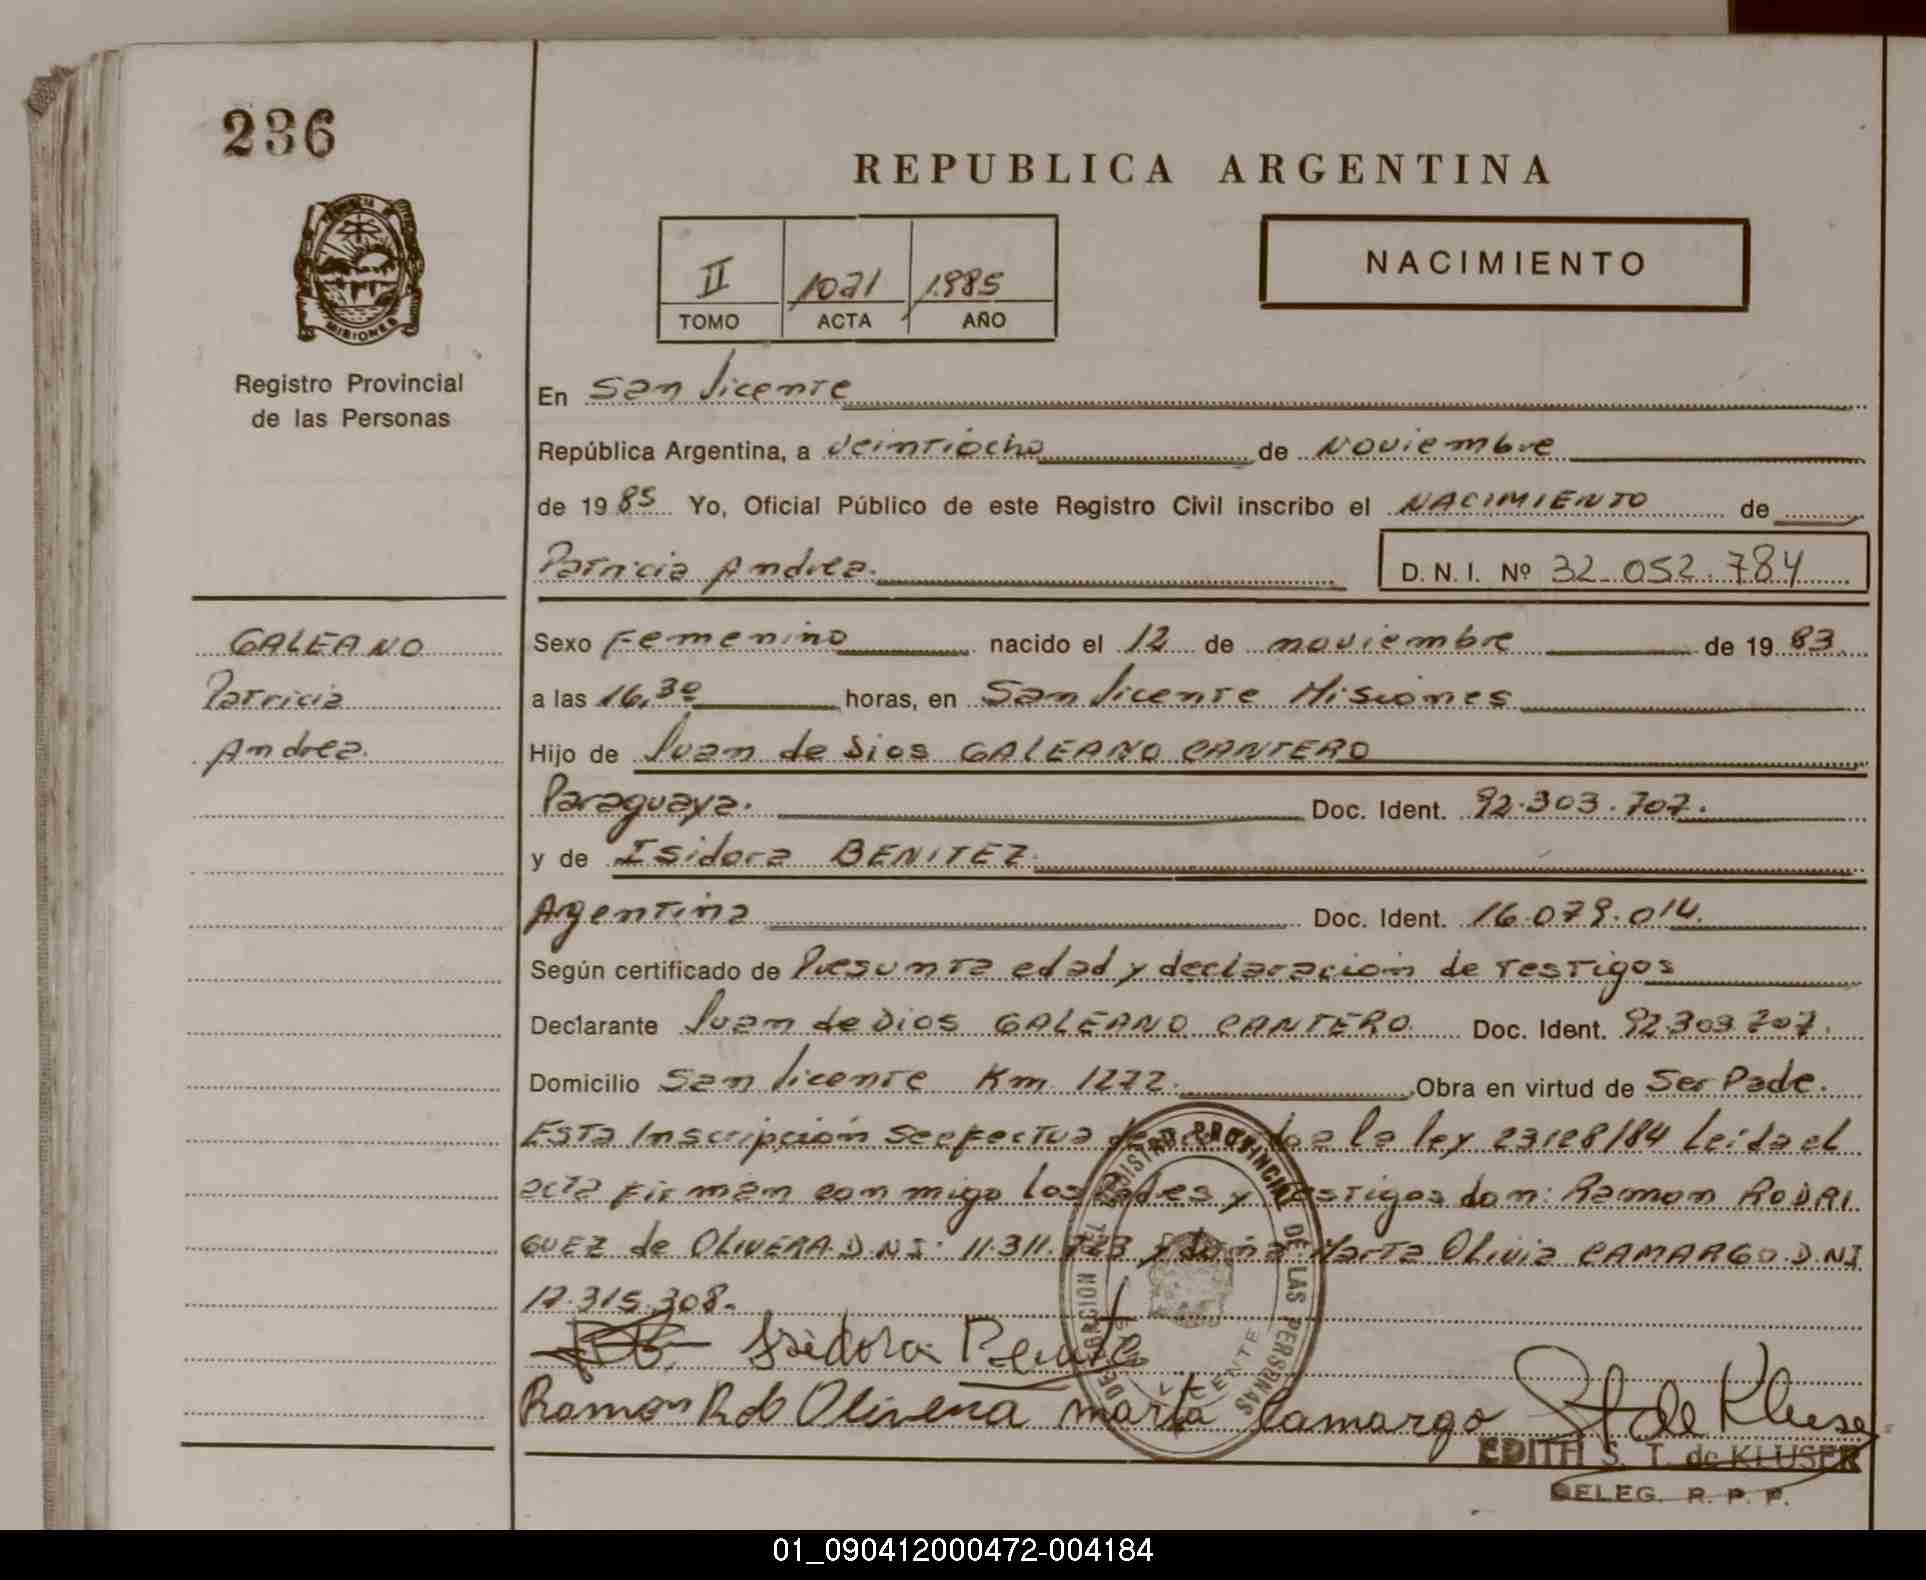 236
REPUBLICA ARGENTINA
NACIMIENTO
II 1021 1985
TOMO ACTA AÑO
MISIONES
Registro Provincial
de las Personas
En San Vicente
República Argentina, a veintiocho de Noviembre
de 1985 Yo, Oficial Público de este Registro Civil inscribo el NACIMIENTO de
Patricia Andrea.
D. N. I. Nº 32.052.784
GALEANO
Patricia
Andrea.
Sexo Femenino nacido el 12 de noviembre de 1983
a las 16,30 horas, en San Vicente Misiones
Hijo de Juan de Dios GALEANO CANTERO
Paraguaya. Doc. Ident. 92.303.707.
y de Isidora BENITEZ.
Argentina Doc. Ident. 16.079.014.
Según certificado de Presunta edad y declaración de testigos
Declarante Juan de Dios GALEANO CANTERO Doc. Ident. 92.303.707.
Domicilio San Vicente Km. 1272. Obra en virtud de Ser Padre.
Esta Inscripción se efectua a la ley 23128/84 Leída el
acta firman con migo los Padres y testigos don: Ramon RODRI
GUEZ de OLIVERA D.N.I: 11.311. y doña Marta Olivia CAMARGO D.NI
17.315.308.
Isidora Benite
Ramon Rdo Olivera Marta Camargo St de Kluser
REGISTRO PROVINCIAL DE LAS PERSONAS
VICENTE
EDITH S. T. de KLUSER
DELEG. R. P. P.
01_090412000472-004184